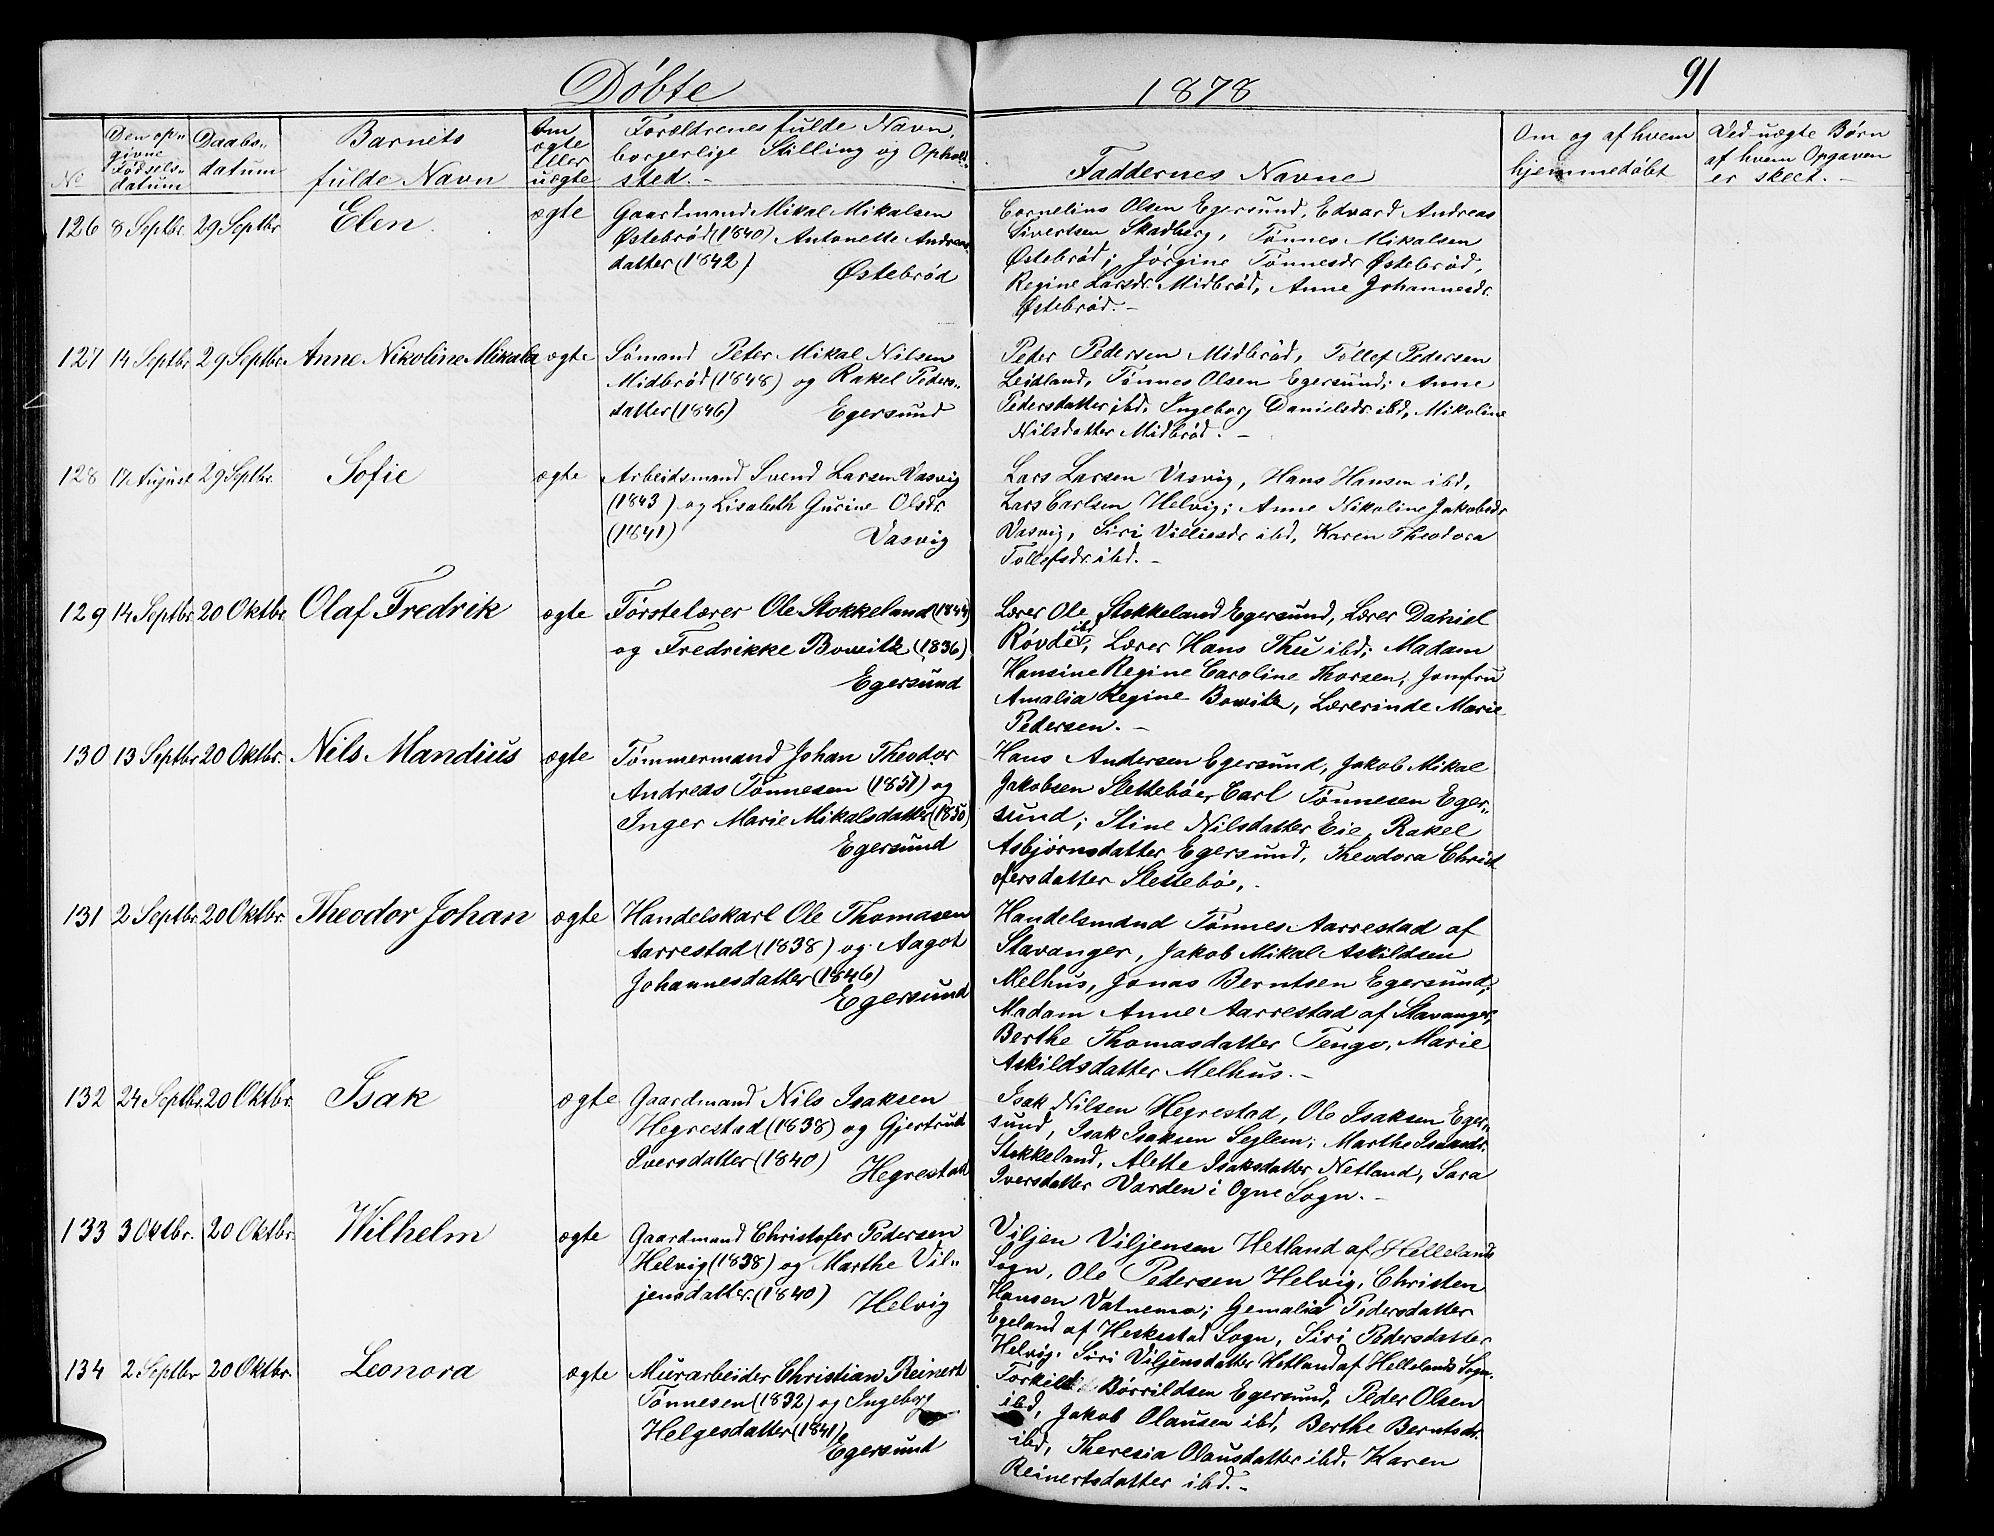 Døbte
1878
91
No
Den op-
givne
Fødsels-
datum
Daabs-
datum
Barnets
fulde Navn
Om
ægte
eller
uægte
Forældrenes fulde Navn,
borgerlige Stilling og Ophold-
sted.-
Faddernes Navne
Om og af hvem
hjemmedøbt
Ved uægte Børn
af hvem Opgaven
er skeet.-
126 8 Septbr. 29 Septbr Elen ægte
Gaardmand Mikal Mikalsen
Østebrød (1840) Antonette Andreas-
datter (1842)
Østebrød
Cornelius Olsen Egersund, Edvard Andreas
Sivertsen Skadberg, Tønnes Mikalsen
Østebrød; Jørgine Tønnesdr Østebrød,
Regine Larsdr. Midbrød, Anne Johannesdr.
Østebrød.-
127 14 Septbr. 29 Septbr. Anne Nikoline Mikala ægte
Sømand Peter Mikal Nilsen
Midbrød (1848) og Rakel Peders-
datter (1846) Egersund
Peder Pedersen Midbrød, Tollef Pedersen
Leidland, Tønnes Olsen Egersund; Anne
Pedersdatter ibd. Ingeborg Danielsdr. ibd, Mikoline
Nilsdatter Midbrød.-
128 17 August 29 Septbr. Sofie ægte
Arbeidsmand Svend Larsen Vasvig
(1843) og Lisabeth Gurine Olsdr.
(1841) Vasvig
Lars Larsen Vasvig, Hans Hansen ibd,
Lars Carlsen Helvig; Anne Nikoline Jakobsdr
Vasvig, Siri Villiesdr ibd, Karen Theodora
Tollefsdr. ibd.-
129 14 Septbr. 20 Oktbr Olaf Fredrik ægte
Førstelærer Ole Stokkeland (1844)
og Fredrikke Boweitz (1836)
Egersund
Lærer Ole Stokkeland Egersund, Lærer Daniel
Røvde ibd, Lærer Hans Thu ibd; Madam
Hansine Regine Caroline Thorsen, Jomfru
Amalia Regine Bowitz, Lærerinde Marie
Pedersen.-
130 13 Septbr 20 Oktbr. Nils Mandius ægte
Tømmermand Johan Theodor
Andreas Tønnesen (1851) og
Inger Marie Mikalsdatter (1850)
Egersund
Hans Andersen Egersund, Jakob Mikal
Jakobsen Slettebøe, Carl Tønnesen Eger-
sund; Stine Nilsdatter Eie, Rakel
Asbjørnsdatter Egersund, Theodora Christ
ofersdatter Slettebøe.
131 2 Septbr 20 Oktbr. Theodor Johan ægte
Handelskarl Ole Thomasen
Aarrestad (1838) og Aagot
Johannesdatter (1846)
Egersund
Handelsmand Tønnes Aarrestad af
Stavanger, Jakob Mikal Askildsen
Melhus, Jonas Berntsen Egersund;
Madam Anne Aarrestad af Stavanger,
Berthe Thomasdatter Tengs, Marie
Askildsdatter Melhus.-
132 24 Septbr. 20 Oktbr. Isak ægte
Gaardmand Nils Isaksen
Hegrestad (1838) og Gjertrud
Iversdatter (1840) Hegrestad
Isak Nilsen Hegrestad, Ole Isaksen Eger-
sund, Isak Isaksen Seglem; Marthe Isaksdr.
Stokkeland, Alette Isaksdatter Netland, Sara
Iversdatter Varden i Ogne Sogn.-
133 3 Oktbr. 20 Oktbr. Wilhelm ægte
Gaardmand Christofer Pedersen
Helvig (1838) og Marthe Vil-
jensdatter (1840) Helvig
Viljen Viljensen Hetland af Hellelands
Sogn, Ole Pedersen Helvig, Christen
Hansen Vatnemo; Gemalia Pedersdatter
Egeland af Heskestad Sogn, Siri Pedersdatter
Helvig, Siri Viljensdatter Hetland af Hellelands Sogn.
134 2 Septbr 20 Oktbr. Leonora ægte
Murarbeider Christian Reinert
Tønnesen (1832) og Ingeborg
Helgesdatter (1841)
Egersund
Torkild Børrildsen Egersund, Peder Olsen
ibd, Jakob Olausen ibd, Berthe Berntsdr.
ibd, Theresia Olausdatter ibd. Karen
Reinertsdatter ibd.-